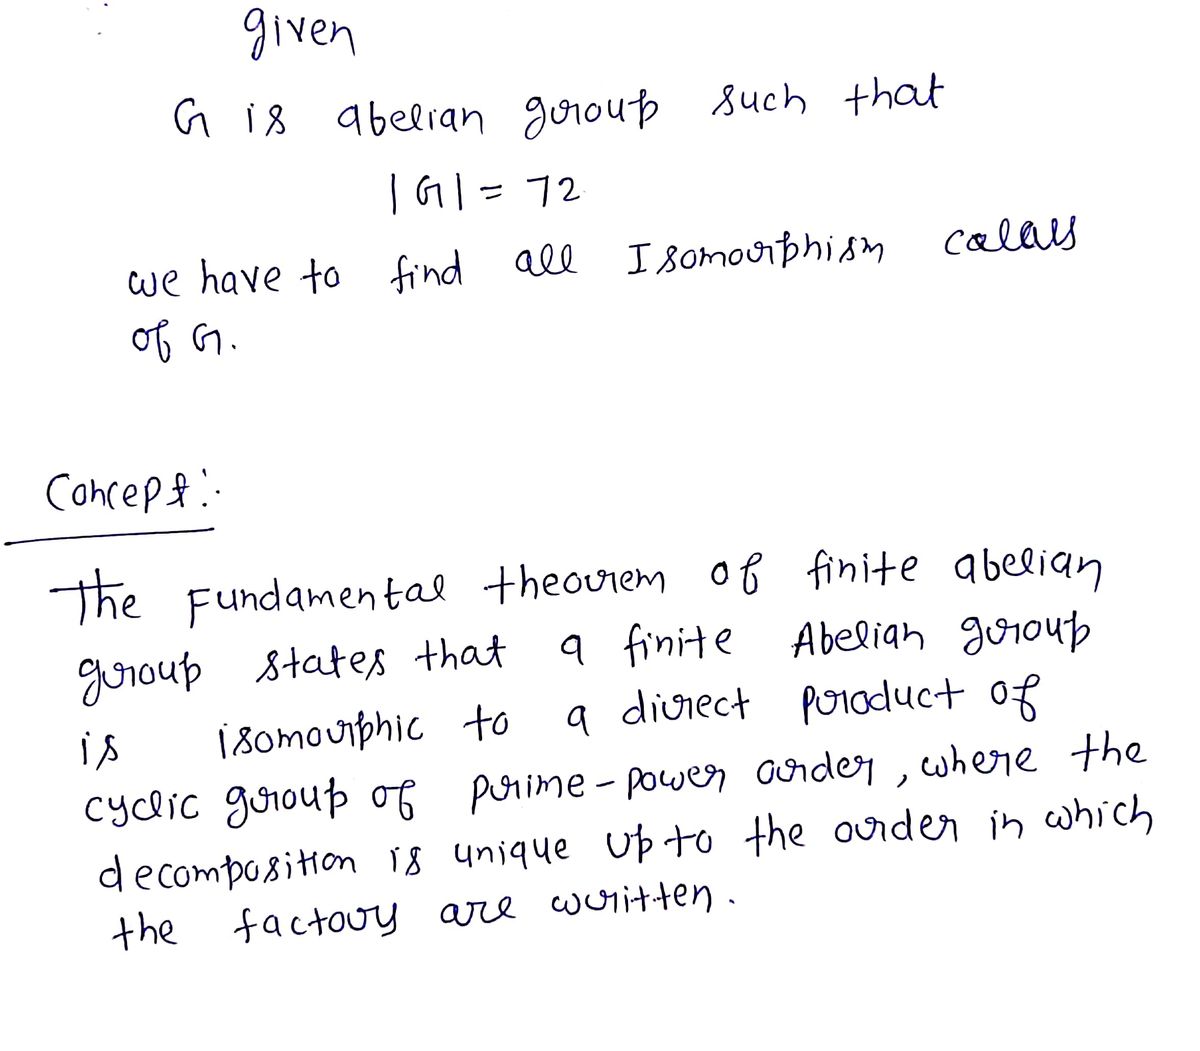 given
G is abelian group such that
|G| = 72
we have to find all Isomorphism calass
of G.
Concept:
The Fundamental theorem of finite abelian
group states that a finite Abelian group
is isomorphic to a direct product of
cyclic group of prime-power order, where the
decomposition is unique up to the order in which
the factory are written.